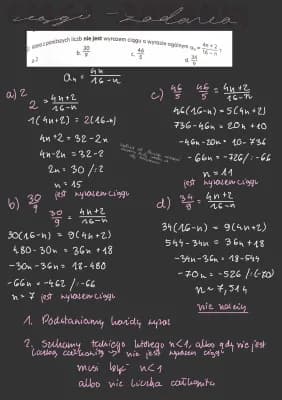 ciągi - zadania
z poniższych liczb nie jest wyrazem ciągu o wyrazie ogólnym aₙ = (4n+2)/(16-n)?
a. 2
b. 30/9
c. 46/5
d. 34/9
aₙ = 4n/(16-n)
a) 2
2 = (4n+2)/(16-n)
1(4n+2) = 2(16-n)
4n+2 = 32-2n
4n-2n = 32-2
2n = 30 /:2
n = 15
jest wyrazem ciągu
b) 30/9
30/9 = (4n+2)/(16-n)
30(16-n) = 9(4n+2)
480-30n = 36n+18
-30n-36n = 18-480
-66n = -462 /:-66
n = 7 jest wyrazem ciągu
c) 46/5
46/5 = (4n+2)/(16-n)
46(16-n) = 5(4n+2)
736-46n = 20n+10
-46n-20n = 10-736
-66n = -726 /:-66
n = 11
jest wyrazem ciągu
d) 34/9 = (4n+2)/(16-n)
34(16-n) = 9(4n+2)
544-34n = 36n+18
-34n-36n = 18-544
-70n = -526 /:(-70)
n ≈ 7,514
nie należy
1. Podstawiamy każdy wyraz
2. Szukamy takiego którego n<1, albo gdy nie jest
liczbą całkowitą → nie jest wyrazem ciągu
musi być n<1
albo nie liczba całkowita